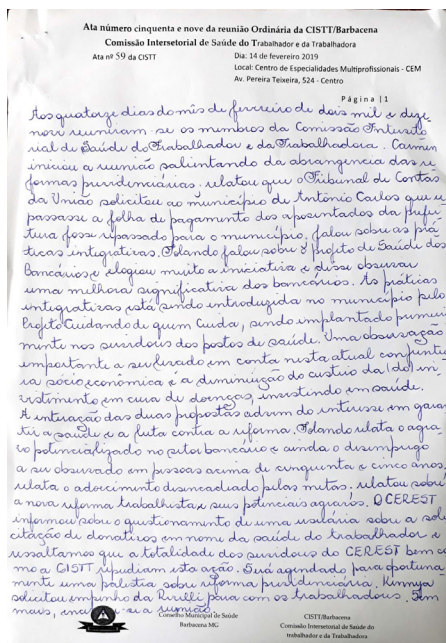 Ata número cinquenta e nove da reunião Ordinária da CISTT/Barbacena
Comissão Intersetorial de Saúde do Trabalhador e da Trabalhadora
Ata nº 59 da CISTT
Dia: 14 de fevereiro 2019
Local: Centro de Especialidades Multiprofissionais - CEM
Av. Pereira Teixeira, 524 - Centro
Página | 1
Aos quatorze dias do mês de fevereiro de dois mil e deze
nove reuniram-se os membros da Comissão Interseto
rial de Saúde do Trabalhador e da Trabalhadora. Carmen
iniciou a reunião salientando da abrangência das re
formas previdenciárias. relatou que o Tribunal de Contas
da União solicitou ao município de Antônio Carlos que re
passasse a folha de pagamento dos aposentados da prefei
tura fosse repassado para o município, falou sobre as prá
ticas integrativas. falou sobre o projeto de Saúde dos
Bancários e elogiou muito a iniciativa e disse observar
uma melhora significativa dos bancários. As práticas
integrativas está sendo introduzida no município pelo
Projeto Cuidando de quem Cuida, sendo implantado primeira
mente nos servidores dos postos de saúde. Uma observação
importante a ser levado em conta nesta atual conjuntu
ra sócio econômica é a diminuição do custeio da (de) in
vestimento em cura de doenças, investindo em saúde.
A interação das duas propostas advem do interesse em garan
tir a saúde e a luta contra a reforma. relata o agra
vo potencializado no setor bancário e ainda o desemprego
a ser observado em pessoas acima de cinquenta e cinco anos,
relata o adoecimento desencadiado pelas metas. relatou sobre
a nova reforma trabalhista e seus potenciais agravos. O CEREST
informou sobre o questionamento de uma usuária sobre a soli
citação de donativos em nome da saúde do trabalhador e
ressaltamos que a totalidade dos servidores do CEREST bem co
mo a CISTT repudiam esta ação. Será agendado para oportuna
mente uma palestra sobre reforma previdenciária.
solicitou empenho da para com os trabalhadores. Sem
mais, se a reunião.
Conselho Municipal de Saúde
Barbacena MG
CISTT/Barbacena
Comissão Intersetorial de Saúde do
trabalhador e da Trabalhadora